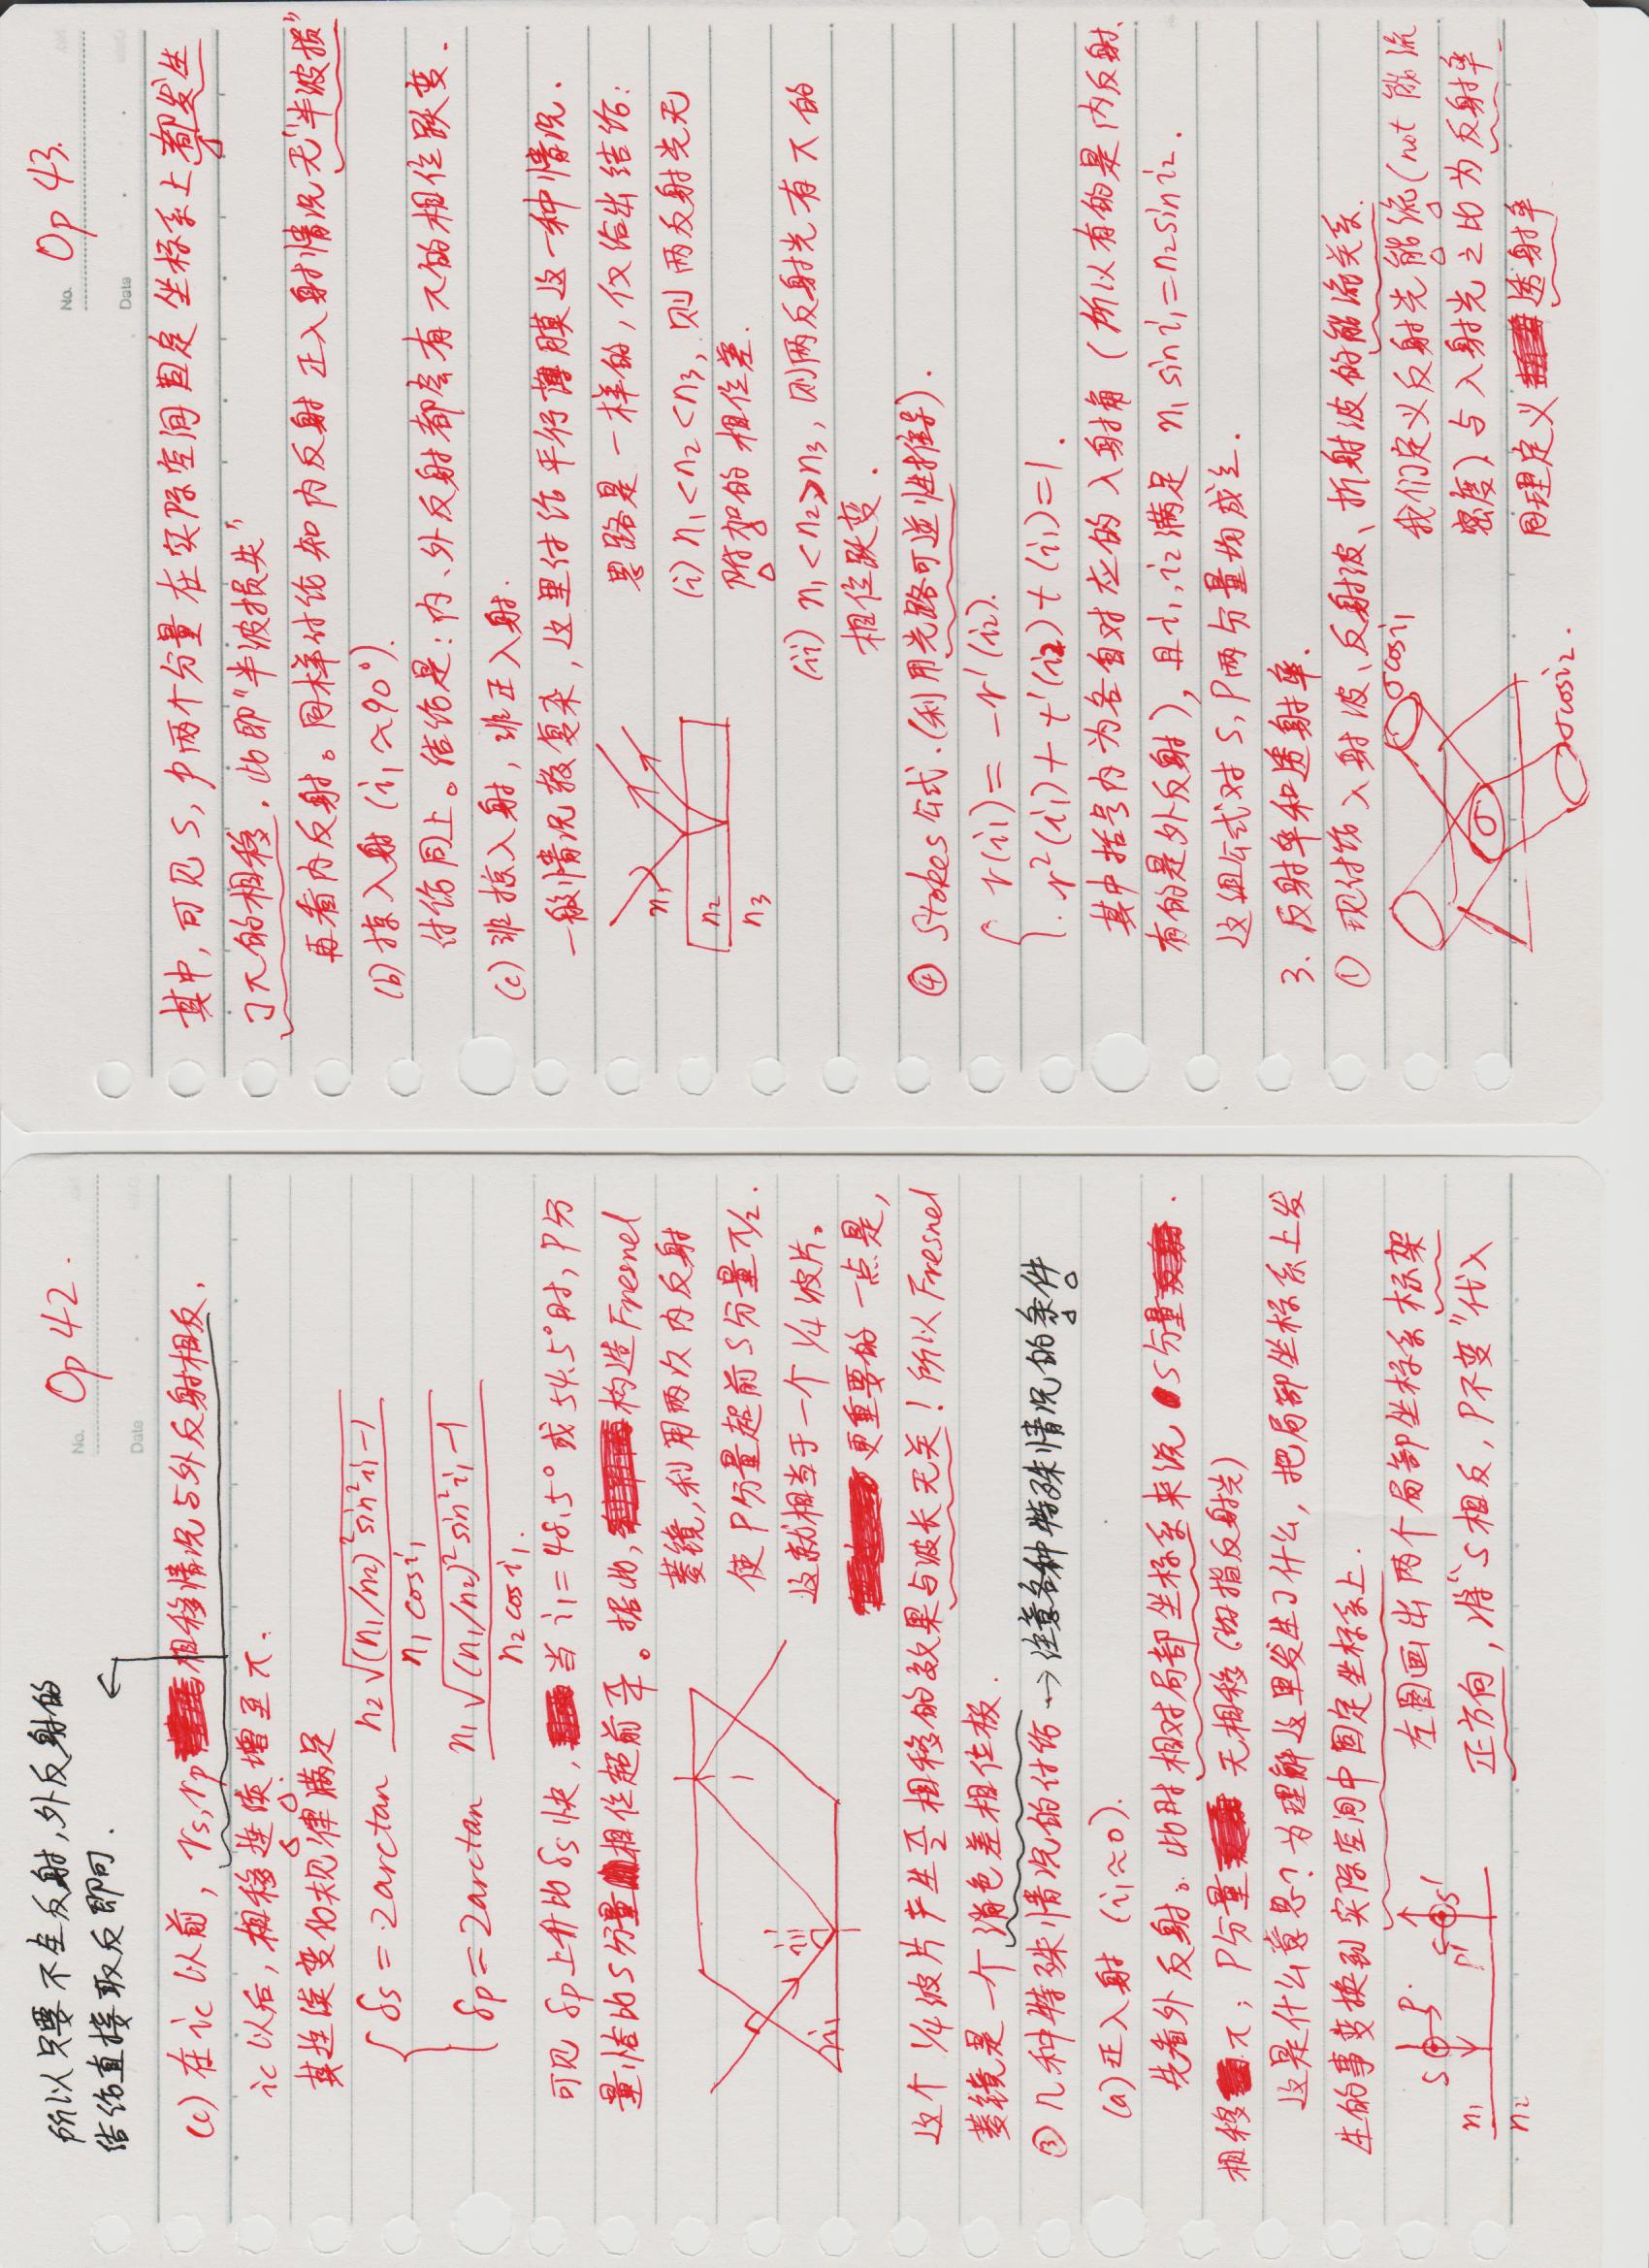 所以只要不全反射,外反射的
结论直接取反即可.
No. Op 42.
Date
(c) 在 ic 以前, rs,rp 相移情况与外反射相反.
ic 以后, 相移连续增至π.
其连续变化规律满足
δs = 2arctan n2√((n1/n2)²sin²i1-1) / n1 cosi1
δp = 2arctan n1√((n1/n2)²sin²i1-1) / n2 cosi1.
可见 δp上升比δs快, 当 i1=48.5° 或 54.5°时, P分
量恰比S分量相位超前π/4。据此, 构造Fresnel
菱镜,利用两次内反射
使P分量超前S分量π/2.
这就相当于一个1/4波片。
更重要的一点是,
这个1/4波片产生π/2相移的效果与波长无关!所以Fresnel
菱镜是一个消色差相位板.
i1
i1
③ 几种特殊情况的讨论 → 注意各种特殊情况的条件
(a) 正入射 (i1≈0).
先看外反射。此时相对局部坐标系来说 S分量
相移π; P分量 无相移(均指反射光)
这是什么意思?为理解这里发生了什么, 把局部坐标系上发
生的事变换到实际空间中固定坐标系上.
左图画出两个局部坐标系标架
正方向, 将“S相反, P不变”代入
S P P' S'
n1
n2
No. Op 43.
Date
其中, 可见 S, P两个分量在实际空间固定坐标系上都发生
了π的相移. 此即“半波损失”
再看内反射。同样讨论知内反射正入射情况无“半波损”
(b) 掠入射 (i1≈90°).
讨论同上。结论是: 内、外反射都会有π的相位跃变.
(c) 非掠入射, 非正入射.
一般情况较复杂, 这里讨论平行薄膜这一种情况.
思路是一样的, 仅给出结论:
n1
n2
n3
(i) n1<n2<n3, 则两反射光无
附加的相位差.
(ii) n1<n2>n3, 则两反射光有π的
相位跃变.
④ Stokes公式.(利用光路可逆性推导).
r(i1) = -r'(i2).
r²(i1) + t'(i2) t(i1)=1.
其中括号内为各自对应的入射角 (所以有的是内反射,
有的是外反射), 且i1,i2满足 n1 sin i1=n2 sin i2.
这组公式对 S, P两分量均成立.
3. 反射率和透射率.
① 现讨论入射波、反射波、折射波的能流关系.
σcosi1
σ
σcosi2.
我们定义反射光能流(not 能流
密度)与入射光之比为反射率
同理定义 透射率